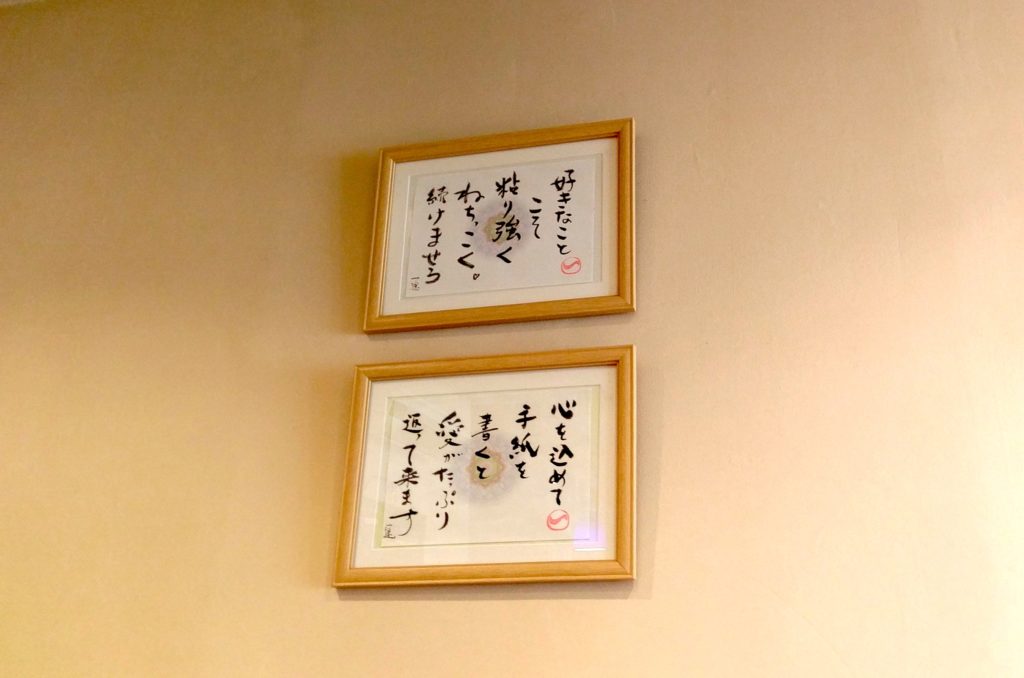 好きなこと
こそ
粘り強く
ねちっこく。
続けませう
心を込めて
手紙を
書くと
愛がたっぷり
返って来ます